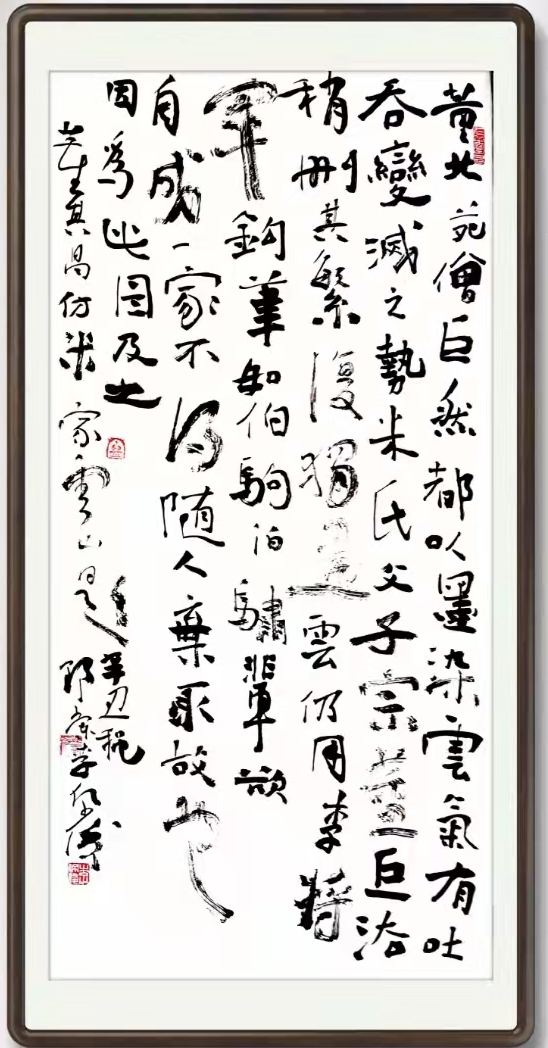 董北苑僧巨然都以墨染雲氣有吐
吞變滅之勢米氏父子宗董巨法
稍刪其繁復獨畫雲仍用李將
軍鈎筆如伯駒伯驌輩欲
自成一家不得随人棄取故也
因爲此圖及之
其昌仿米家雲山題
辛丑秋